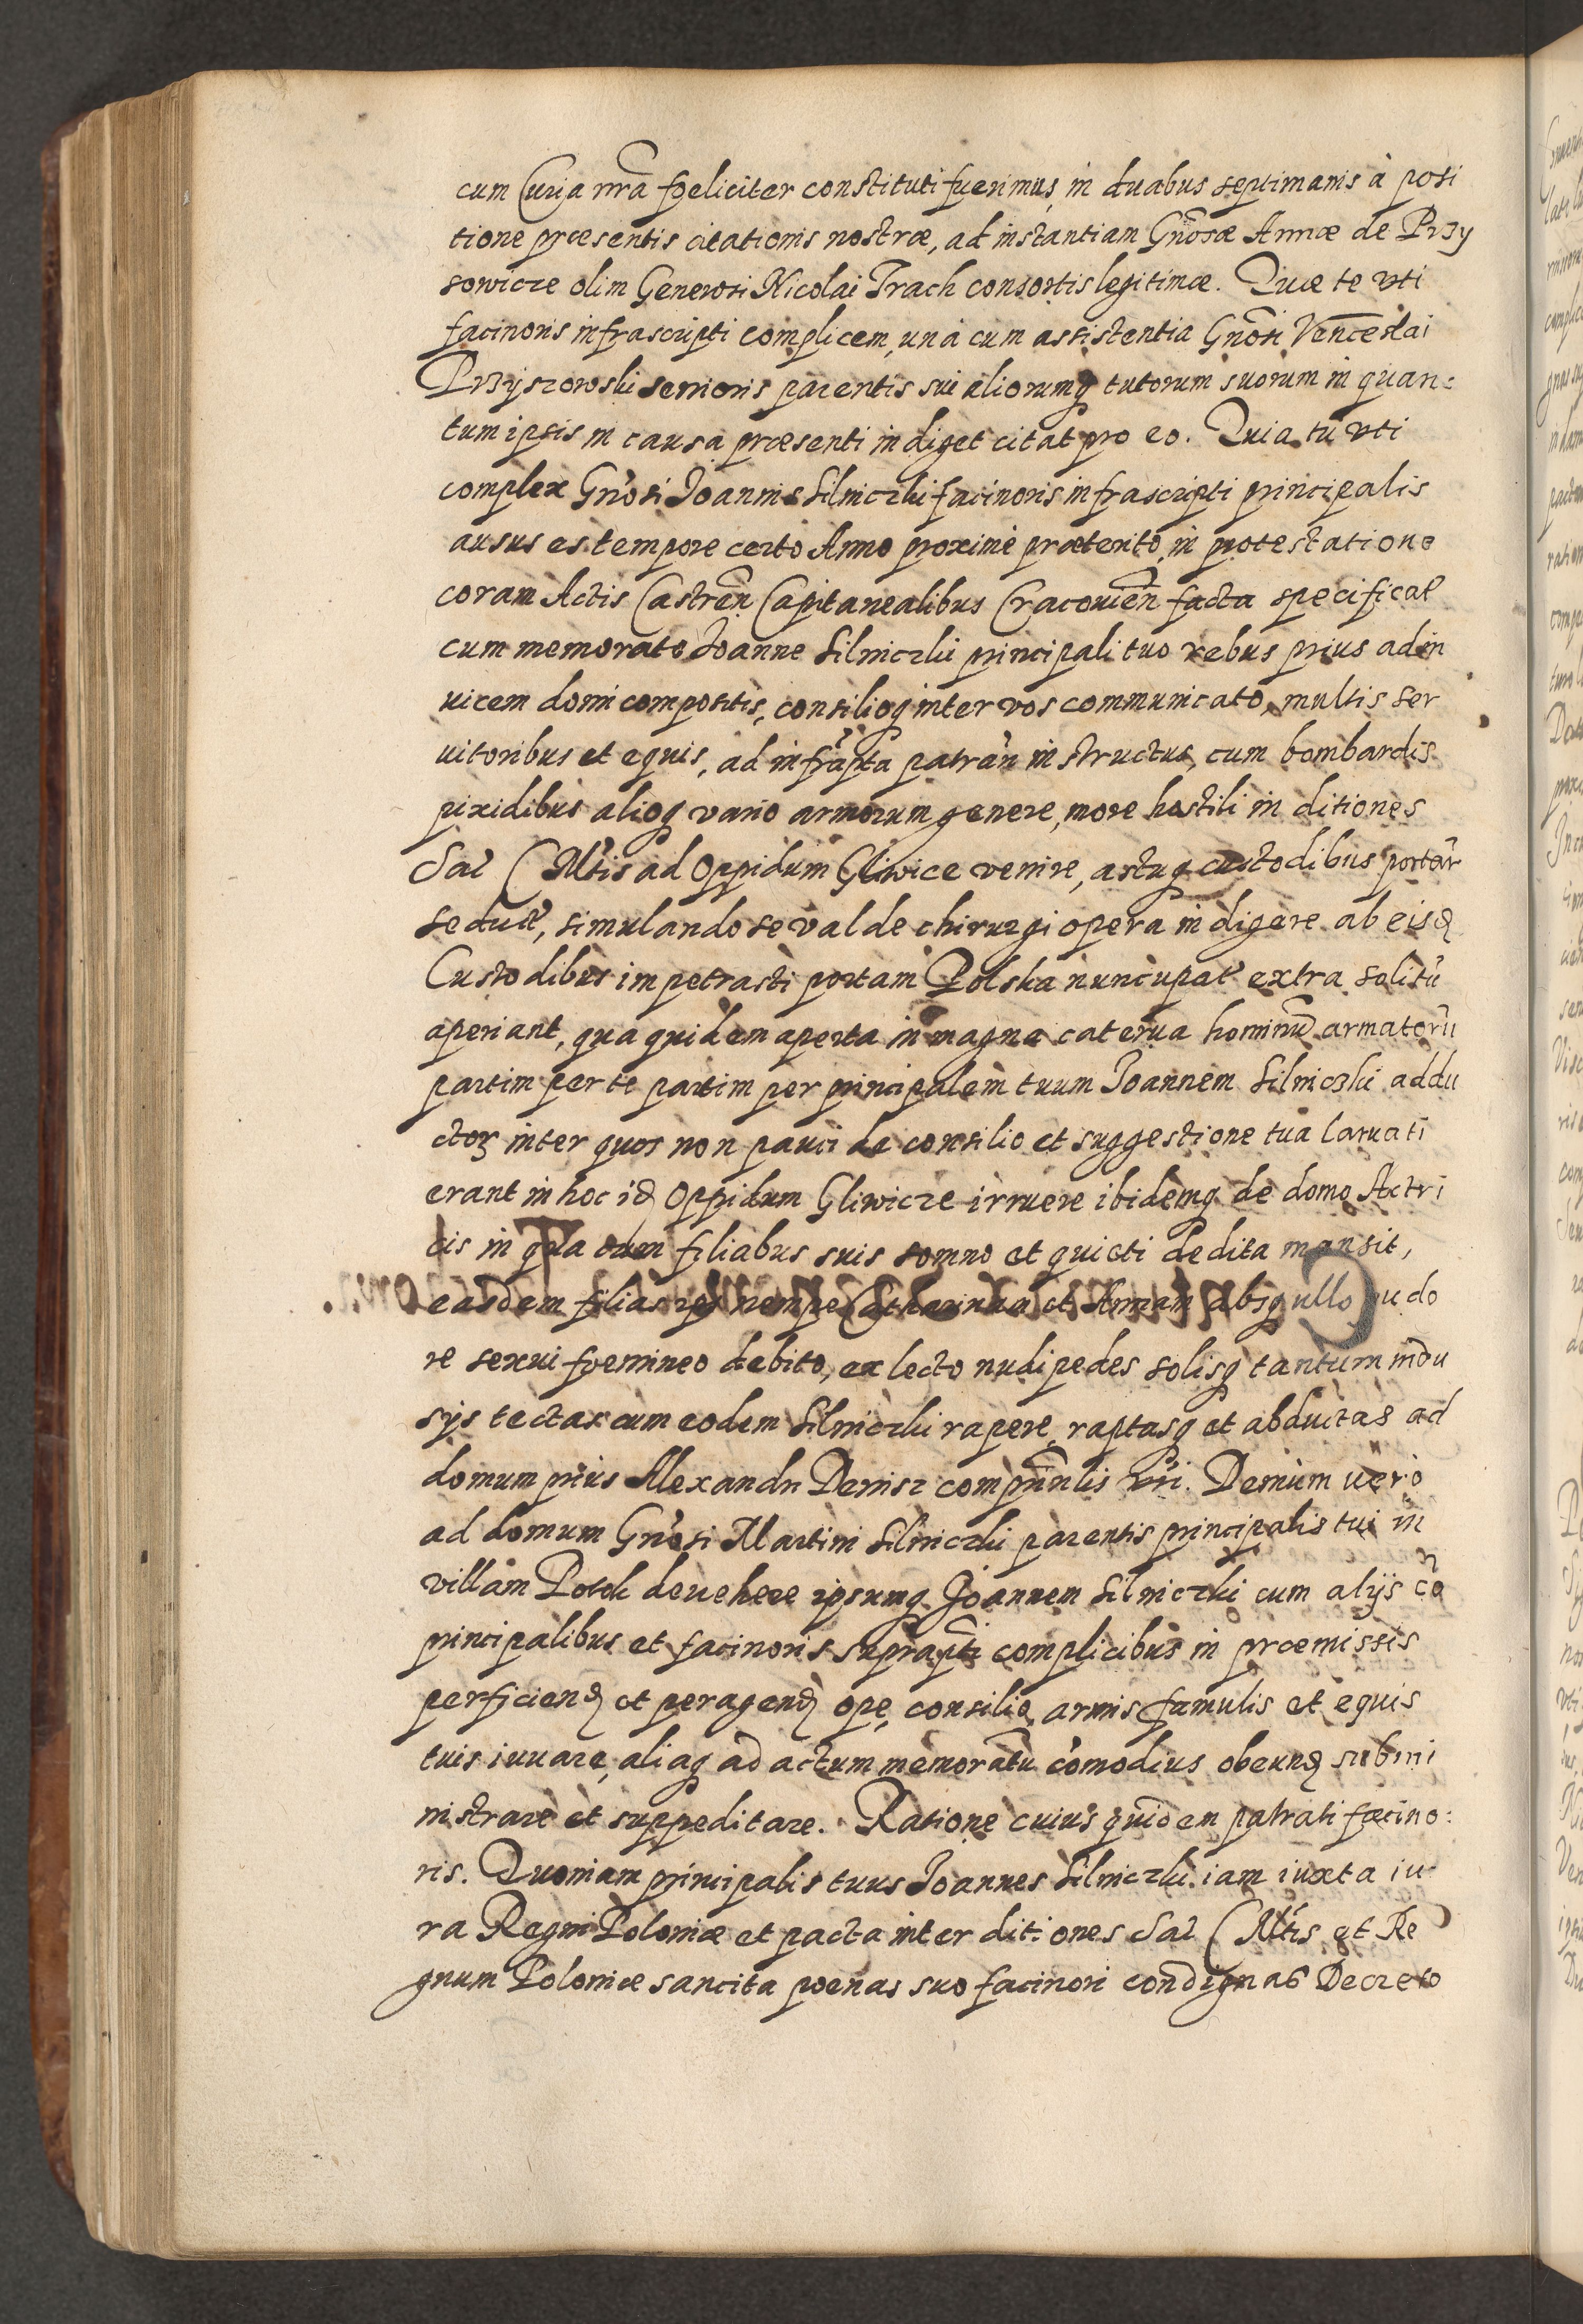 cum Curia nr̃a fęliciter constituti fuerimus, in duabus septimanis à posi
tione præsentis citationis nostræ, ad instantiam Gnosæ Annæ de Przy
sowicze olim Generosi Nicolai Trach consortis legitimæ. Quæ te vti
facinoris infrascripti complicem, unà cum assistentia Gnosi Venceslai
Przyszowski senioris parentis sui aliorumq tutorum suorum in quan=
tum ipsis in causa præsenti indiget citat pro eo. Quia tu vti
complex Gnosi Joannis Silniczki facinoris infrascripti principalis
ausus es tempore certo Anno proximè præterito, in protestatione
coram Actis Castren̄ Capitanealibus Cracouien̄ facta specificat
cum memorato Joanne Silniczki principali tuo rebus prius adin
uicem domi compositis, consilioq inter vos communicato, multis ser
uitoribus et equis, ad infrapta patran̄ instructus, cum bombardis
pixidibus alioq vario armorum genere, more hostili in ditiones
Sac C Mtis ad Oppidum Gliwice venire, astuq custodibus portar
seduct, simulando se valde chirurgi opera indigere ab eisd
Custodibus impetrasti portam Polska nuncupat extra solitū
aperiant, qua quidem aperta in magna caterua hominū armatorū
partim per te partim per principalem tuum Joannem Silniczki addu
ctoꝝ inter quos non pauci de consilio et suggestione tua laruati
erant in hoc id Oppidum Gliwicze irruere ibidemq de domo Actri
cis in qua cum filiabus suis somno et quieti dedita mansit,
easdem filias nempe Catharinam et Annam absq ullo pudo
re sexui fęmineo debito, ex lecto nudipedes solisq tantum indu
sijs tectas cum eodem Silniczki rapere, raptasq et abductas ad
domum prius Alexandri Denisz comprinnlis tui. Demum uerò
ad domum Gnosi Martini Silniczki parentis principalis tui in
villam Potok deuehere ipsumq Joannem Silniczki cum alijs cō
principalibus et facinoris suprapti complicibus in præmissis
perficiend et peragend ope, consilio, armis famulis et equis
tuis iuuare, aliaq ad actum memoratū cōmodius obeund submi
nistrare et suppeditare. Ratione cuius quidem patrati facino=
ris. Quoniam principalis tuus Joannes Silniczki iam iuxta iu
ra Regni Poloniæ et pacta inter ditiones Sac C Mtis et Re
gnum Poloniæ sancita poenas suo facinori condignas Decreto